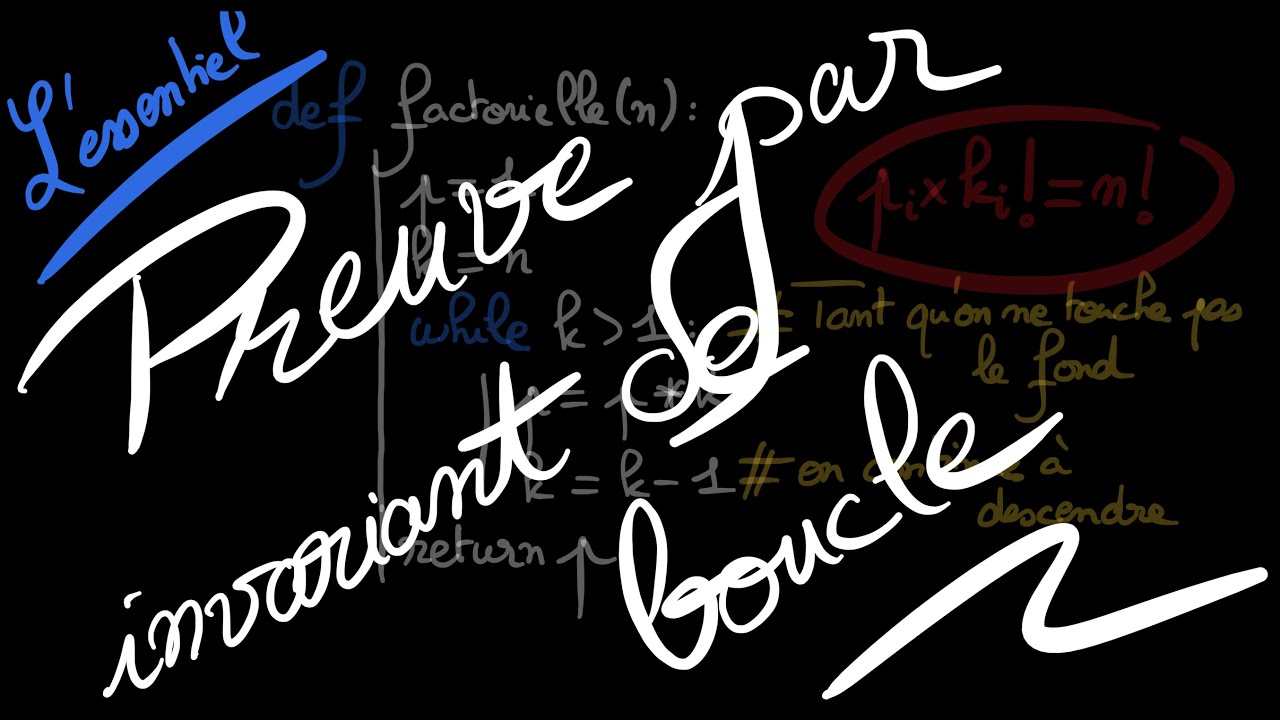 L'essentiel
Preuve par
invariant de
boucle
def factorielle(n):
p = 1
k = n
while k > 1: # Tant qu'on ne touche pas
le fond
p = p * k
k = k - 1 # on continue à
descendre
return p
pi x ki! = n!